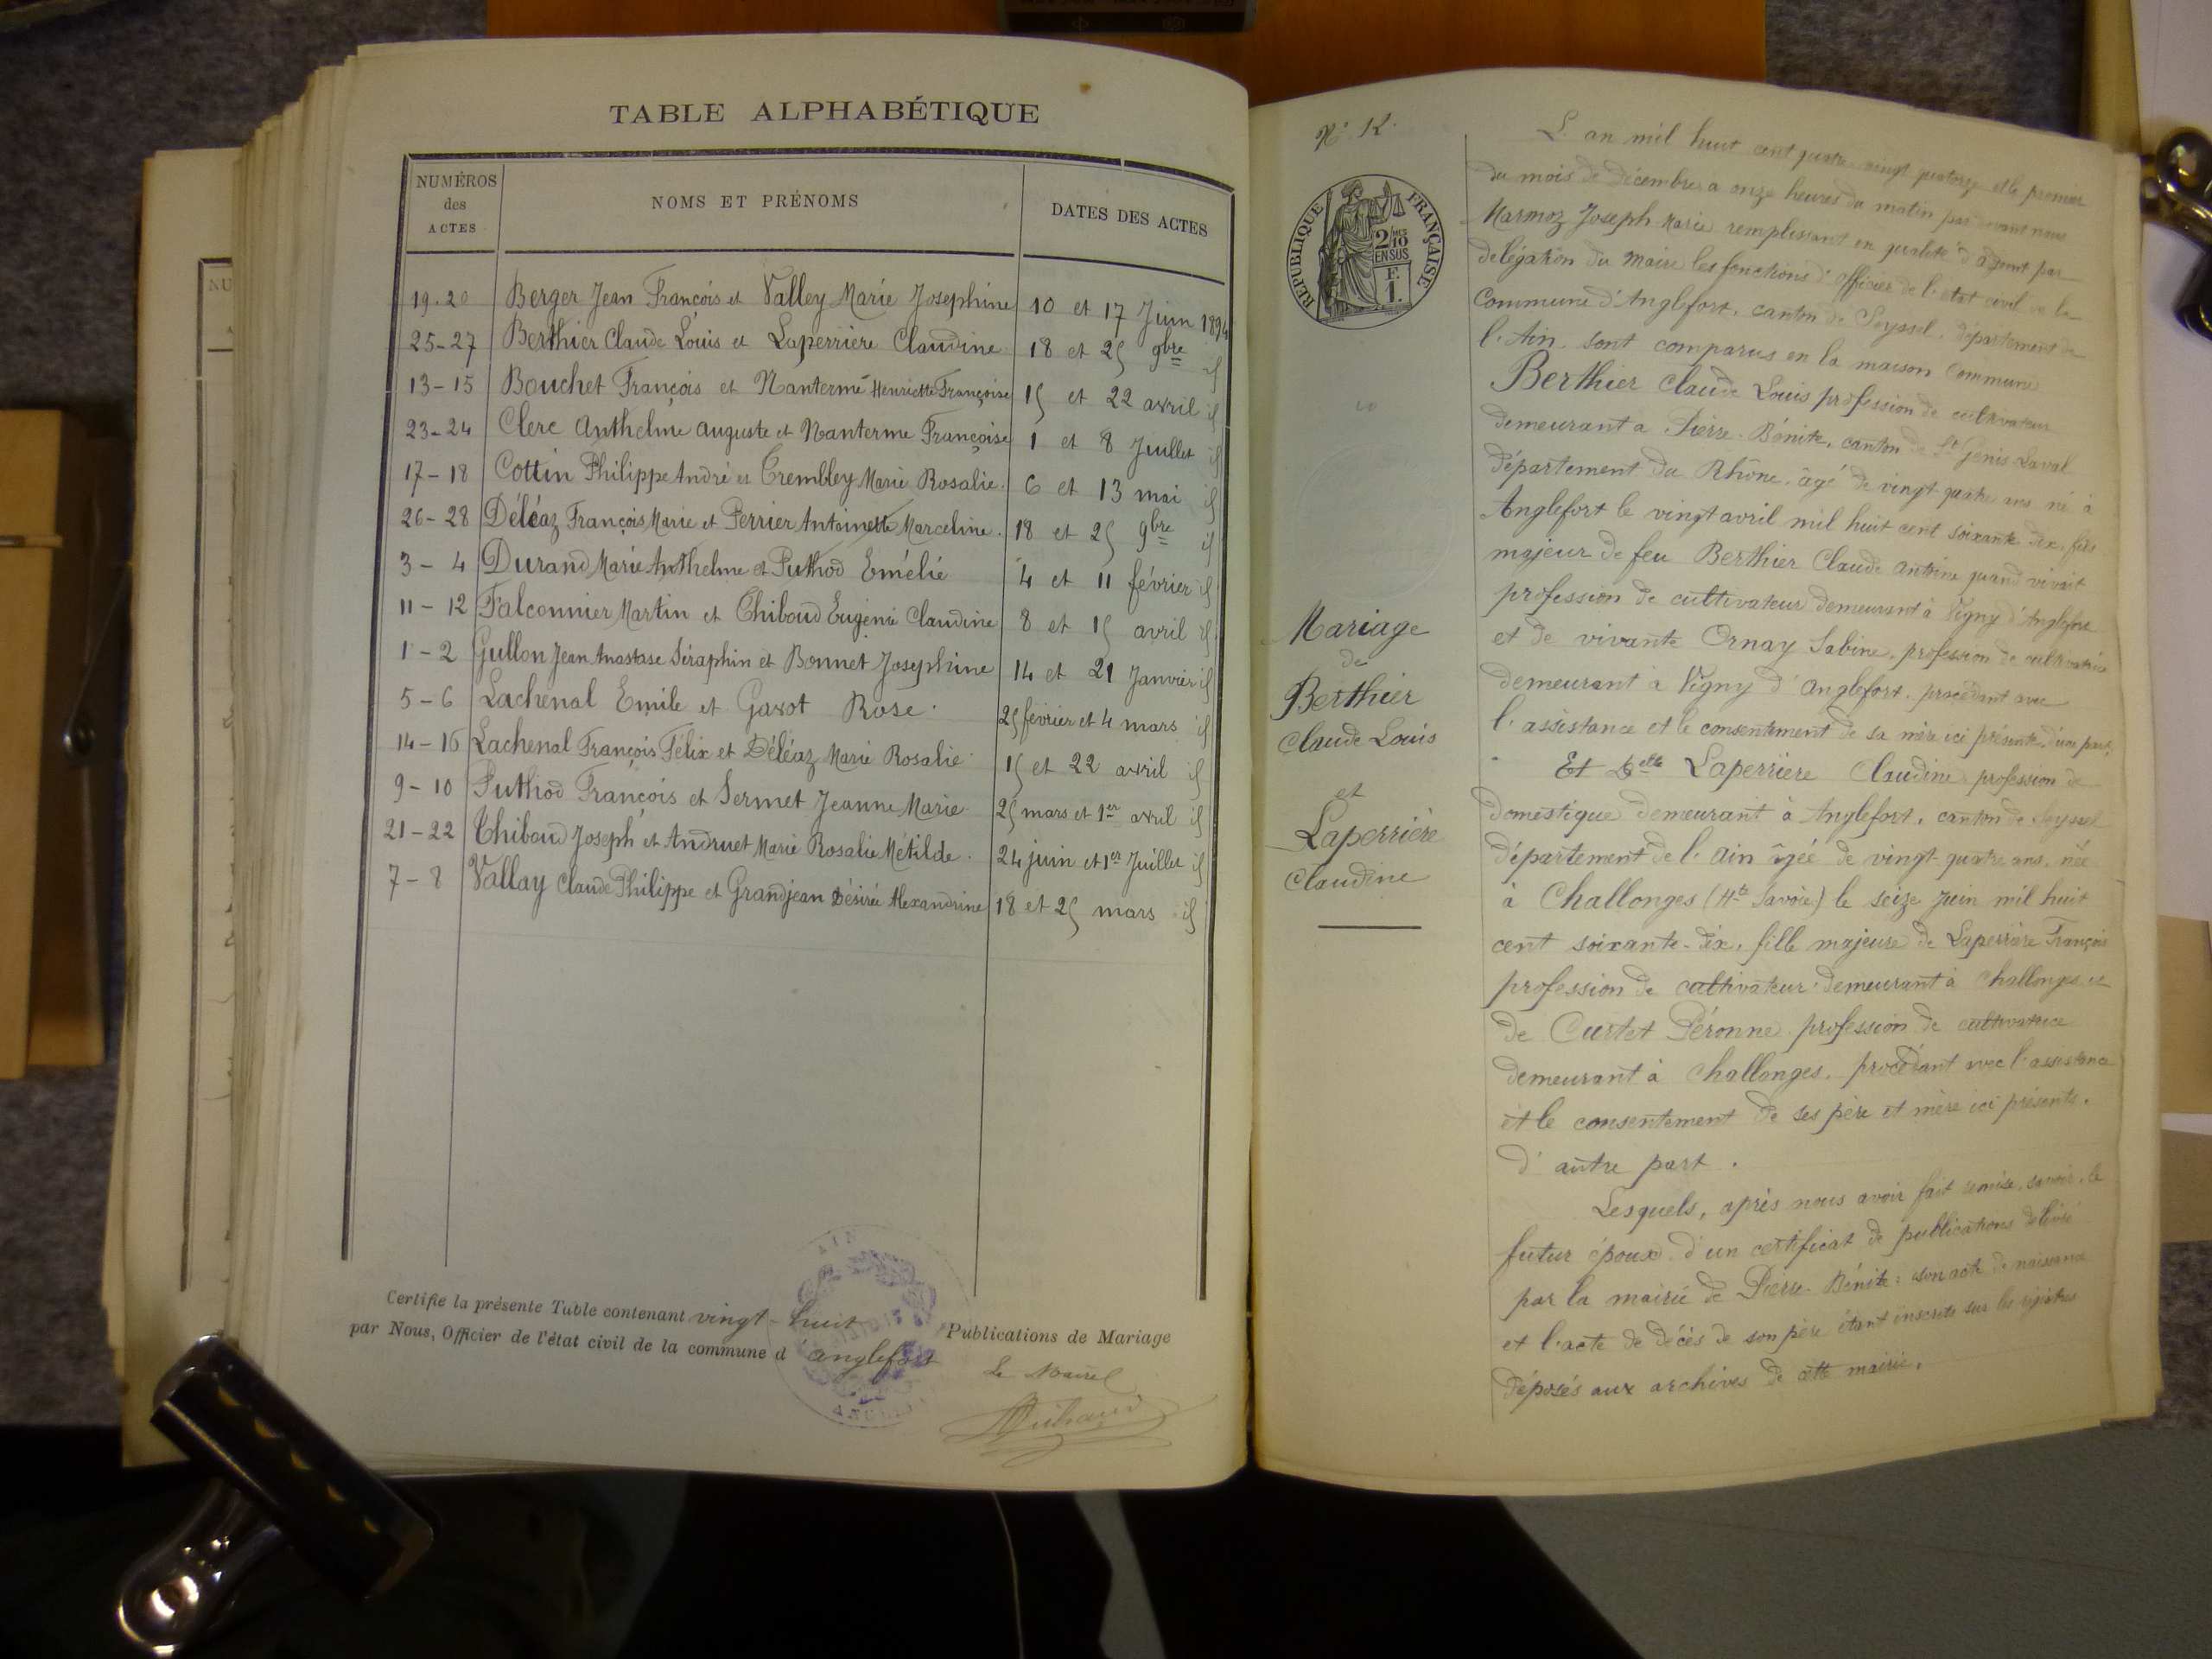 TABLE ALPHABÉTIQUE
NUMÉROS des ACTES | NOMS ET PRÉNOMS | DATES DES ACTES
19-20 Berger Jean François et Valley Marie Josephine 10 et 17 Juin 1894
25-27 Berthier Claude Louis et Laperrière Claudine 18 et 25 9bre id
13-15 Bouchet François et Nanterme Henriette Françoise 15 et 22 avril id
23-24 Clerc Anthelme Auguste et Nanterme Françoise 1 et 8 Juillet id
17-18 Cottin Philippe André et Trembley Marie Rosalie. 6 et 13 mai id
26-28 Déléaz François Marie et Perrier Antoinette Marceline. 18 et 25 9bre id
3-4 Durand Marie Anthelme et Puthod Emélie 4 et 11 février id
11-12 Falconnier Martin et Thiboud Eugénie Claudine 8 et 15 avril id
1-2 Gullon Jean Anastase Séraphin et Bonnet Josephine 14 et 21 Janvier id
5-6 Lachenal Emile et Gavot Rose. 25 février et 4 mars id
14-16 Lachenal François Félix et Déléaz Marie Rosalie 15 et 22 avril id
9-10 Puthod François et Sermet Jeanne Marie. 25 mars et 1er avril id
21-22 Thiboud Joseph et Andruet Marie Rosalie Métilde. 24 juin et 1er Juillet id
7-8 Vallay Claude Philippe et Grandjean Désirée Alexandrine 18 et 25 mars id
Certifie la présente Table contenant vingt-huit Publications de Mariage
par Nous, Officier de l'état civil de la commune d'Anglefort
Le Maire
N° 12.
RÉPUBLIQUE FRANÇAISE
2/10
EN SUS
F.
1.
Mariage
de
Berthier
Claude Louis
et
Laperrière
Claudine
L'an mil huit cent quatre vingt quatorze et le premier
du mois de décembre à onze heures du matin par devant nous
Marmoz Joseph Marie remplissant en qualité d'adjoint par
délégation du Maire les fonctions d'officier de l'état civil de la
Commune d'Anglefort, canton de Seyssel, département de
l'Ain, sont comparus en la maison commune
Berthier Claude Louis profession de cultivateur
demeurant à Pierre-Bénite, canton de St Genis-Laval
département du Rhône, âgé de vingt quatre ans né à
Anglefort le vingt avril mil huit cent soixante dix, fils
majeur de feu Berthier Claude Antoine quand vivait
profession de cultivateur demeurant à Vigny d'Anglefort
et de vivante Ornay Sabine, profession de cultivatrice
demeurant à Vigny d'Anglefort, procédant avec
l'assistance et le consentement de sa mère ici présente, d'une part;
Et Delle Laperrière Claudine profession de
domestique demeurant à Anglefort, canton de Seyssel
département de l'Ain âgée de vingt-quatre ans, née
à Challonges (Hte Savoie) le seize juin mil huit
cent soixante-dix, fille majeure de Laperrière François
profession de cultivateur demeurant à Challonges et
de Curtet Péronne profession de cultivatrice
demeurant à Challonges, procédant avec l'assistance
et le consentement de ses père et mère ici présents.
d'autre part.
Lesquels, après nous avoir fait remise, savoir, le
futur époux d'un certificat de publications délivré
par la mairie de Pierre-Bénite: son acte de naissance
et l'acte de décès de son père étant inscrits sur les registres
déposés aux archives de cette mairie.